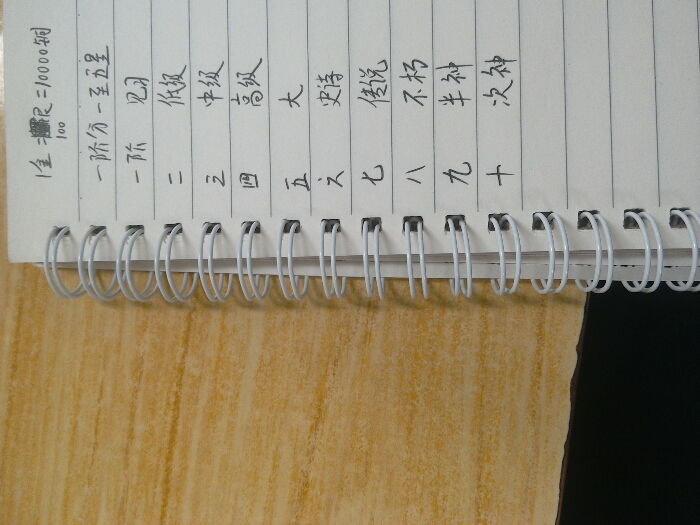 1金=100尺=10000铜
一阶分一至五星
一阶 见习
二 低级
三 中级
四 高级
五 大
六 史诗
七 传说
八 不朽
九 半神
十 次神